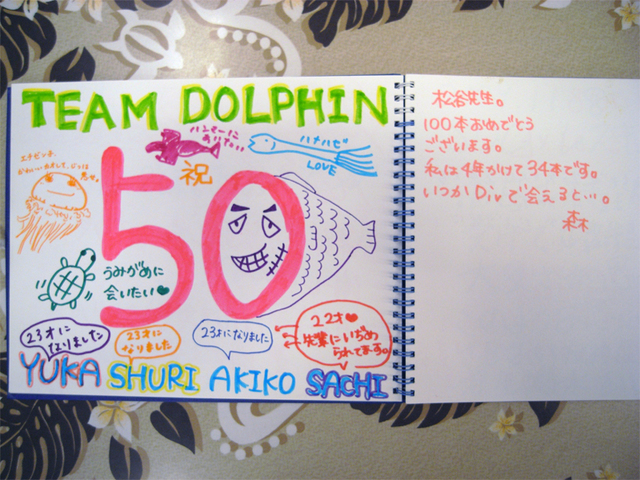 TEAM DOLPHIN
ハンマーに
ハナハゼ
LOVE
祝
50
うみがめに
会いたい♥
23才に
なりました
23才に
なりました
23才になりました
22才♥
先輩にいぢめ
られてます。
YUKA SHURI AKIKO SACHI
松谷先生。
100本おめでとう
ございます。
私は4年かけて34本です。
いつかDivで会えると…。
森